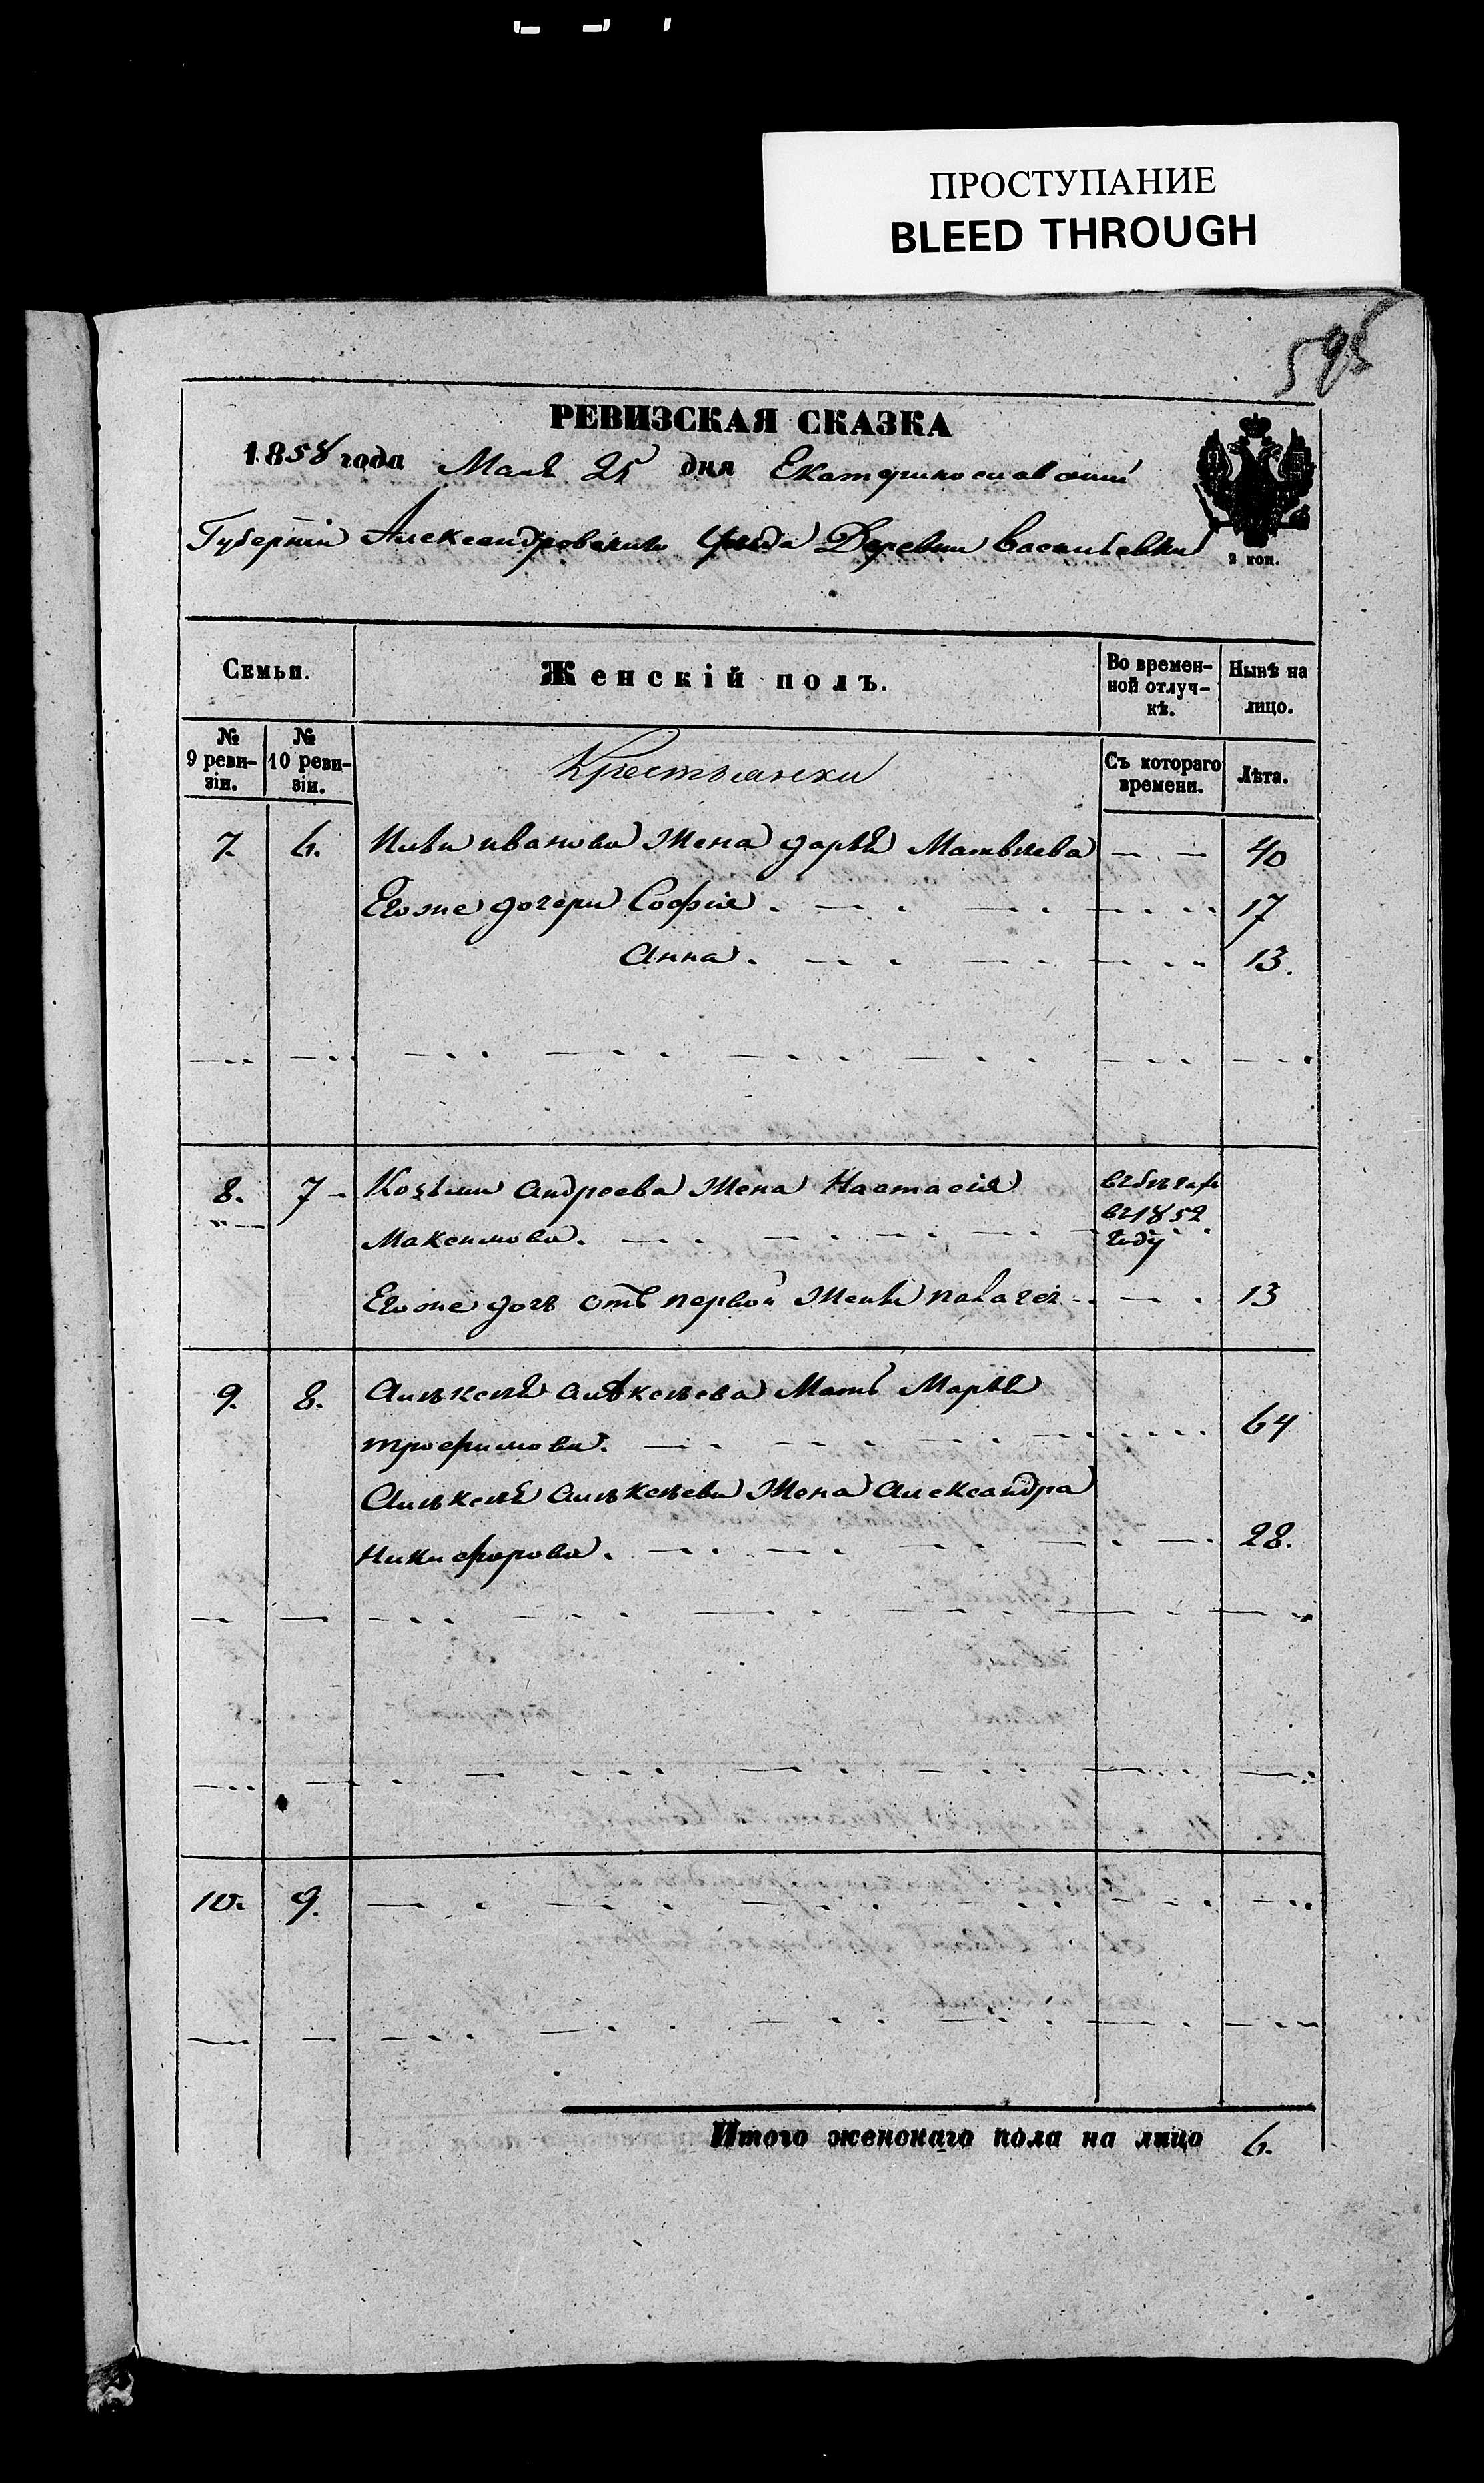 ПРОСТУПАНИЕ
BLEED THROUGH
595
РЕВИЗСКАЯ СКАЗКА
1858 года Мая 25 дня Екатеринославской
Губерніи Александровскаго уѣзда Деревни Васильевки
2 коп.
Семьи. Женскій полъ. Во времен-ной отлуч-кѣ. Нынѣ на лицо.
№ 9 реви-зіи. № 10 реви-зіи. Крестьянски Съ котораго времени. Лѣта.
7. 6. Ильи иванова жена дарья Матвѣева 40
Егоже дочери Софія 17
Анна 13.
8. 7 Козьмы андреева жена Настасія въ бѣгахъ
Максимова въ 1852 году
Егоже дочь отъ первой жены 13
9. 8. Алѣксѣя алѣксѣева Мать Марья
трофимова. 64
Алѣксѣя алѣксѣева жена александра
Никифорова. 28.
10. 9.
Итого женскаго пола на лицо 6.